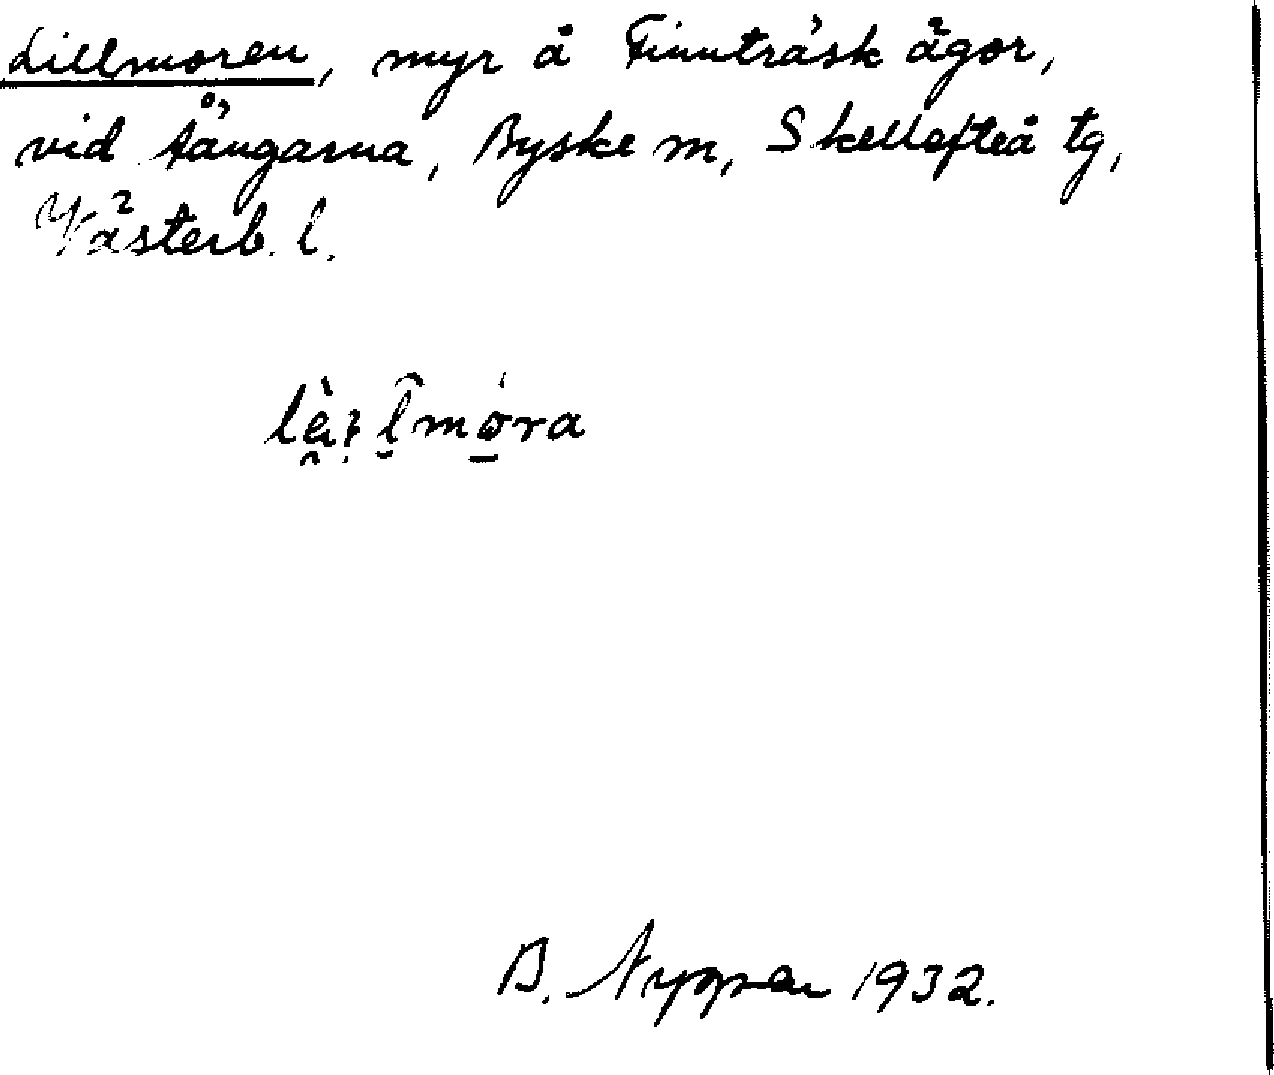 Lillmoren, myr å Finnträsk ägor,
vid Åängarna, Byske sn, Skellefteå tg,
Västerb. l.
B. Nygren 1932.